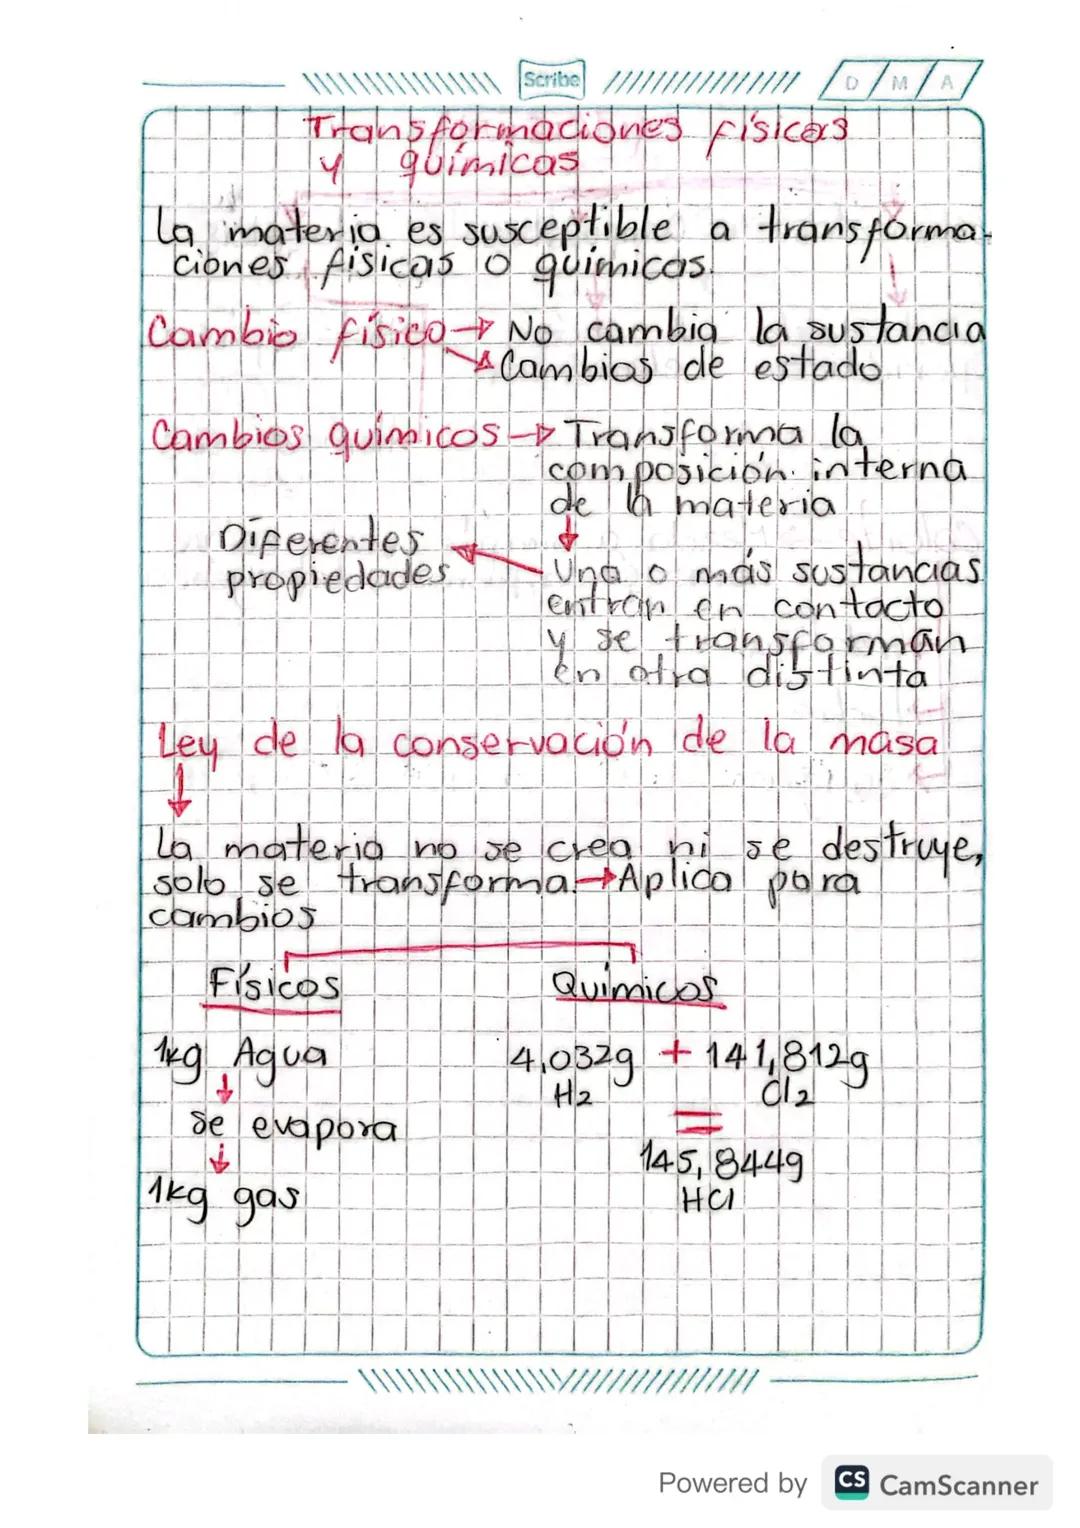 Scribe
D / M / A
Transformaciones físicas
y químicas
La materia es susceptible a transforma-
ciones físicas o químicas.
Cambio físico → No cambia la sustancia
Cambios de estado
Cambios químicos → Transforma la
composición interna
de la materia
Diferentes
propiedades
Una o más sustancias
entran en contacto
y se transforman
en otra distinta
Ley de la conservación de la masa
La materia no se crea ni se destruye,
solo se transforma. → Aplica para
cambios
Físicos
Químicos
1kg Agua
se evapora
1kg gas
4,032g + 141,812g
H2 Cl2
=
145,844g
HCl
Powered by CS CamScanner